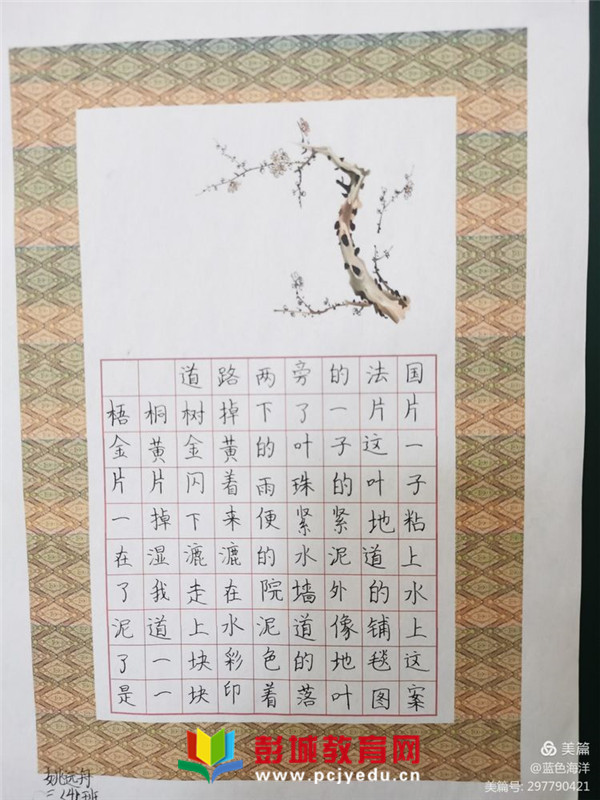 道路两旁的法国
梧桐树掉下了一片片
金黄金黄的叶子这一
片片闪着雨珠的叶子
一掉下来便紧紧地粘
在湿漉漉的水泥道上
了我走在院墙外的水
泥道上水泥道像铺上
了一块彩色的地毯这
是一块印着落叶图案
彭城教育网
www.pcjyedu.cn
美篇
@蓝色海洋
美篇号: 297790421